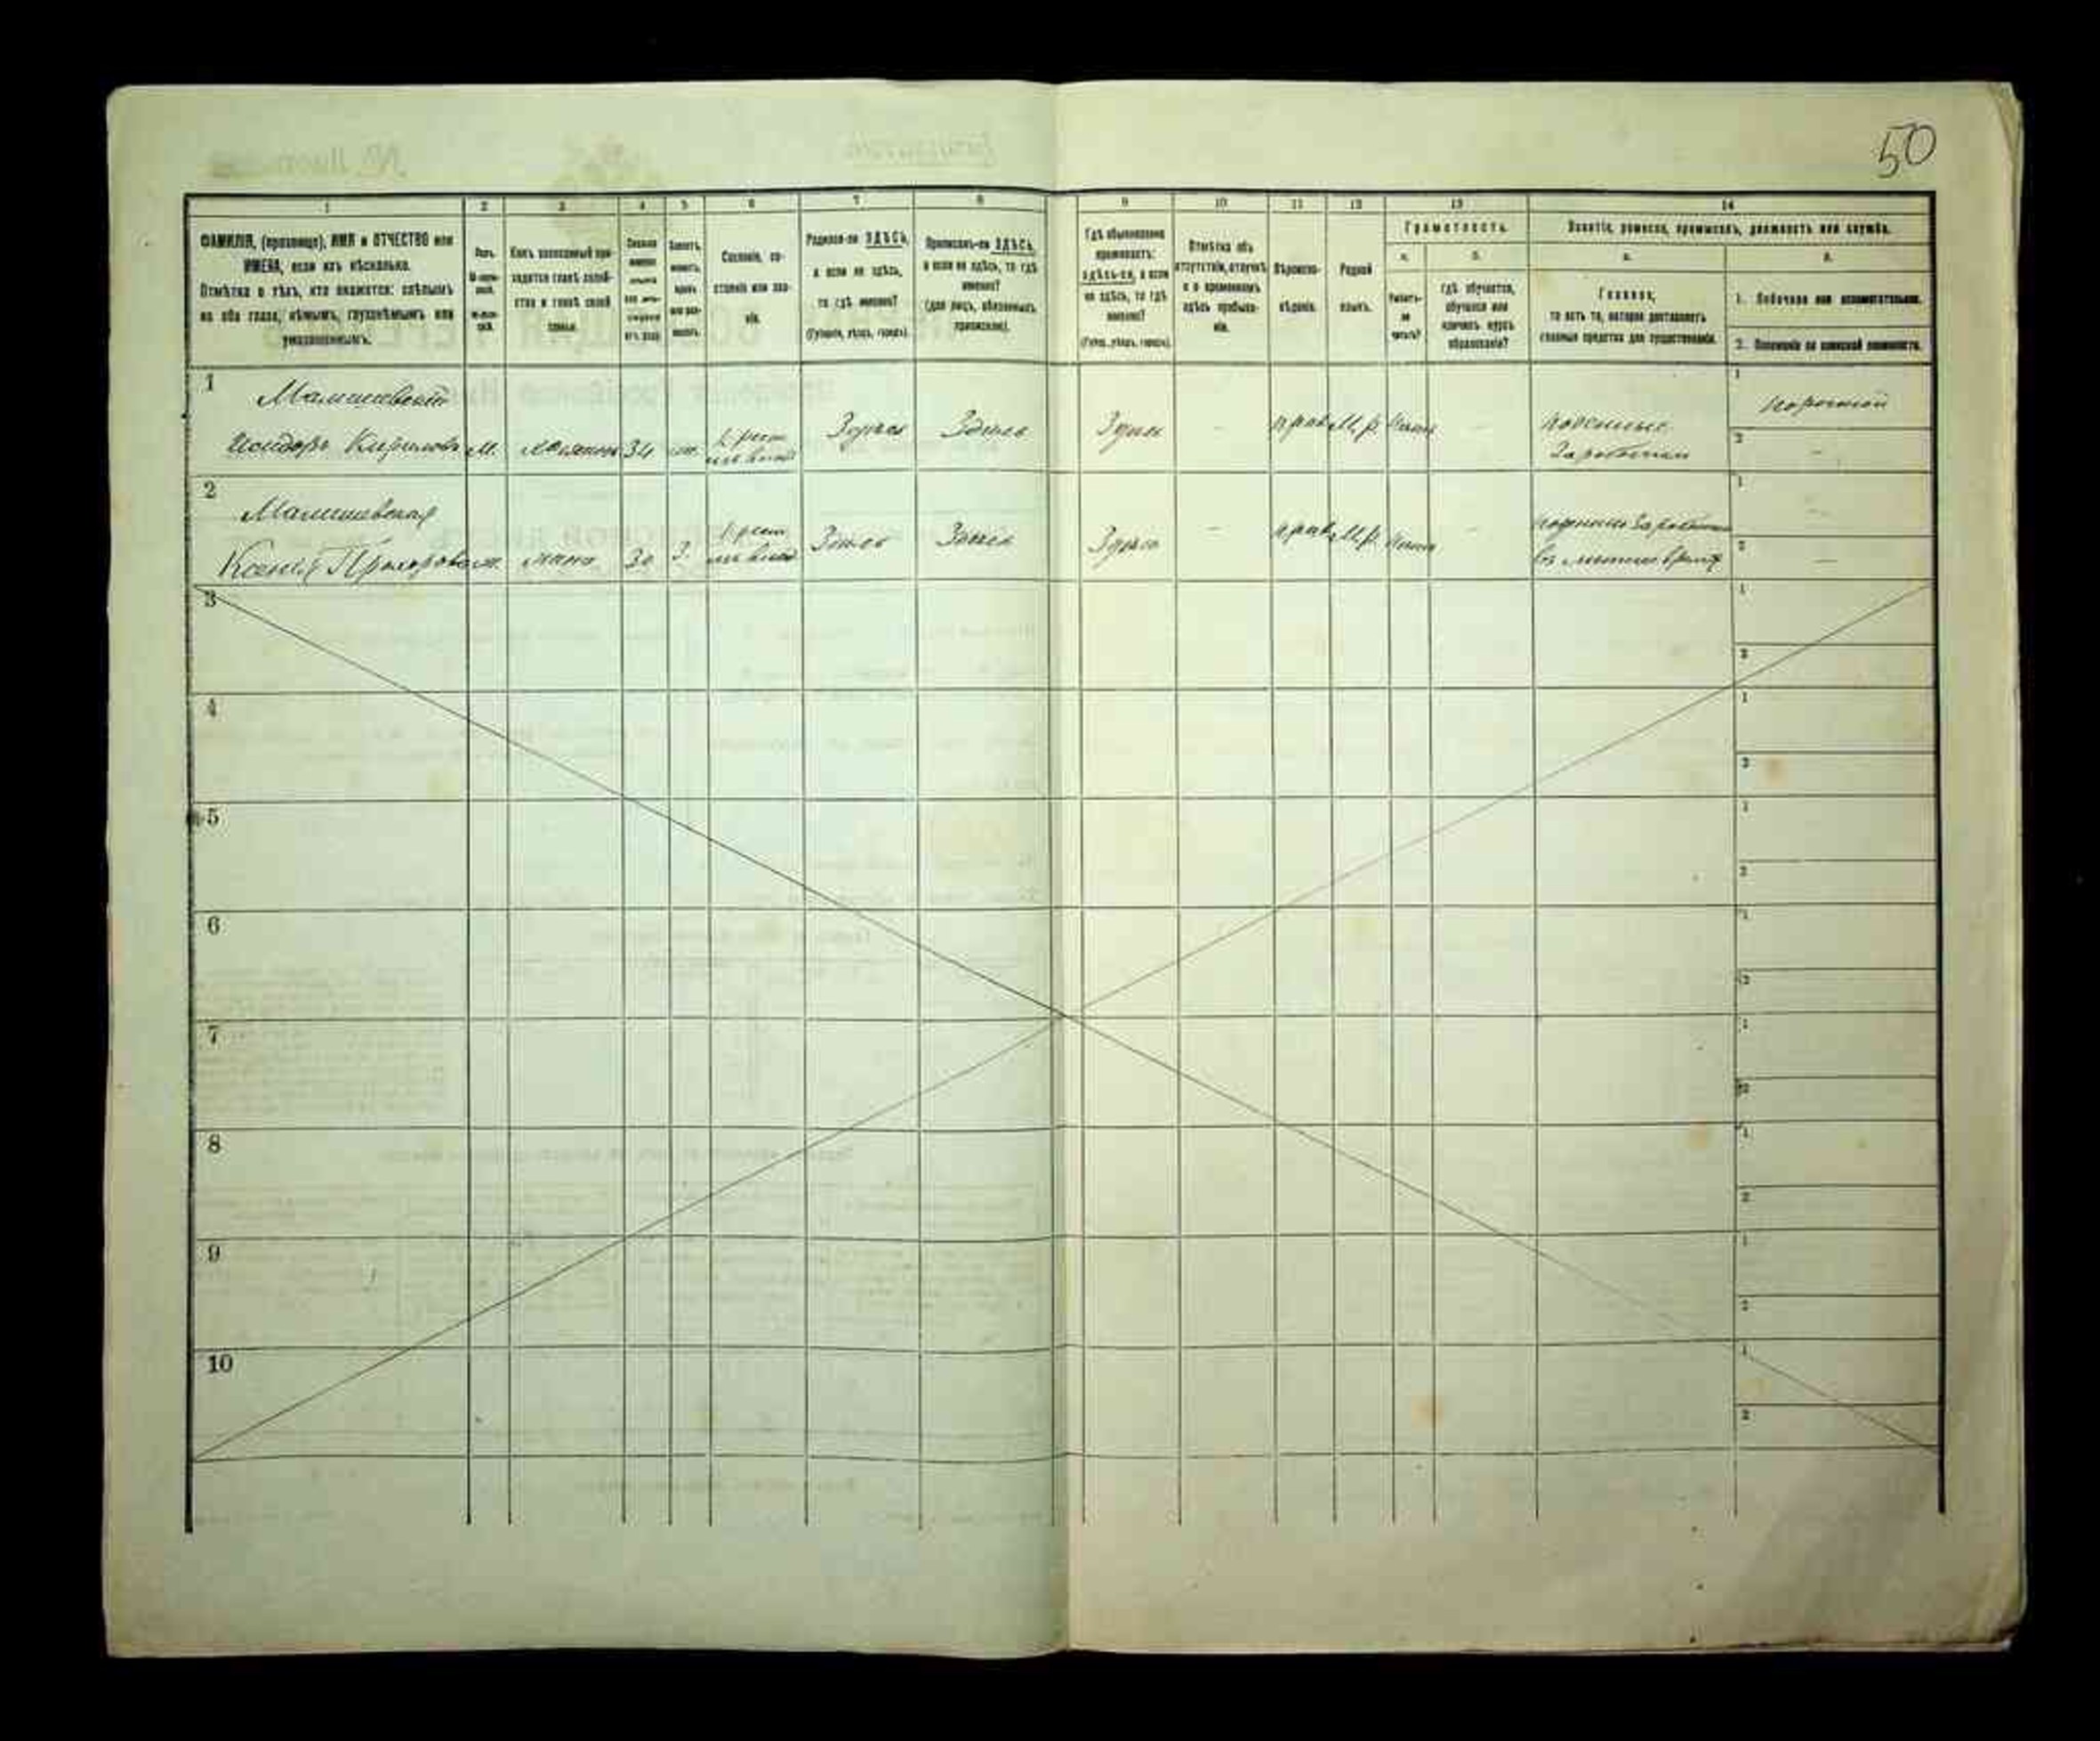 50
1 2 3 4 5 6 7 8 9 10 11 12 13 14
ФАМИЛІЯ, (прозвище), ИМЯ и ОТЧЕСТВО или
ИМЕНА, если ихъ нѣсколько.
Отмѣтка о тѣхъ, кто окажется: слѣпымъ
на оба глаза, нѣмымъ, глухонѣмымъ или
умалишеннымъ.
Полъ.
Какъ записанный при-
ходится главѣ хозяй-
ства и главѣ своей
семьи.
Сословіе, со-
стояніе или зва-
ніе.
Родился-ли ЗДѢСЬ,
а если не здѣсь,
то гдѣ именно?
(Губернія, уѣздъ, городъ).
Приписанъ-ли ЗДѢСЬ,
а если не здѣсь, то гдѣ
именно?
(для лицъ, обязанныхъ
припискою).
Гдѣ обыкновенно
проживаетъ:
здѣсь-ли, а если
не здѣсь, то гдѣ
именно?
(Губер., уѣздъ, городъ).
Отмѣтка объ
отсутствіи, отлучкѣ
и о временномъ
здѣсь пребыва-
ніи.
Вѣроиспо-
вѣданіе.
Родной
языкъ.
Грамотность.
а.
Умѣетъ-
ли
читать?
б.
Гдѣ обучается,
обучался или
кончилъ курсъ
образованія?
Занятіе, ремесло, промыселъ, должность или служба.
а.
Главное,
то есть то, которое доставляетъ
главныя средства для существованія.
б.
1. Побочное или вспомогательное.
2. Положеніе по воинской повинности.
1
Малишевскій
Исидоръ Кириловъ
М.
34
Здѣсь
Здѣсь
Здѣсь
–
прав.
М.р.
–
поденные
Заработки
1
2
–
2
Малишевская
Ксенія Прохорова
ж.
жена
30
З.
Здѣсь
Здѣсь
Здѣсь
–
прав.
М.р.
–
1
–
2
–
3
1
2
4
1
2
5
1
2
6
1
2
7
1
2
8
1
2
9
1
2
10
1
2